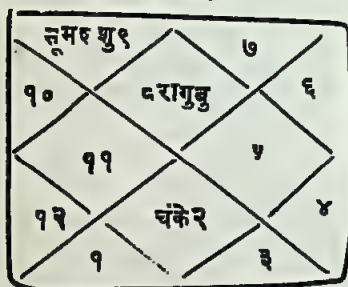 सूमश शु९ ७
१० ८रागुबु ६
११ ५
१२ चंके२ ४
१ ३